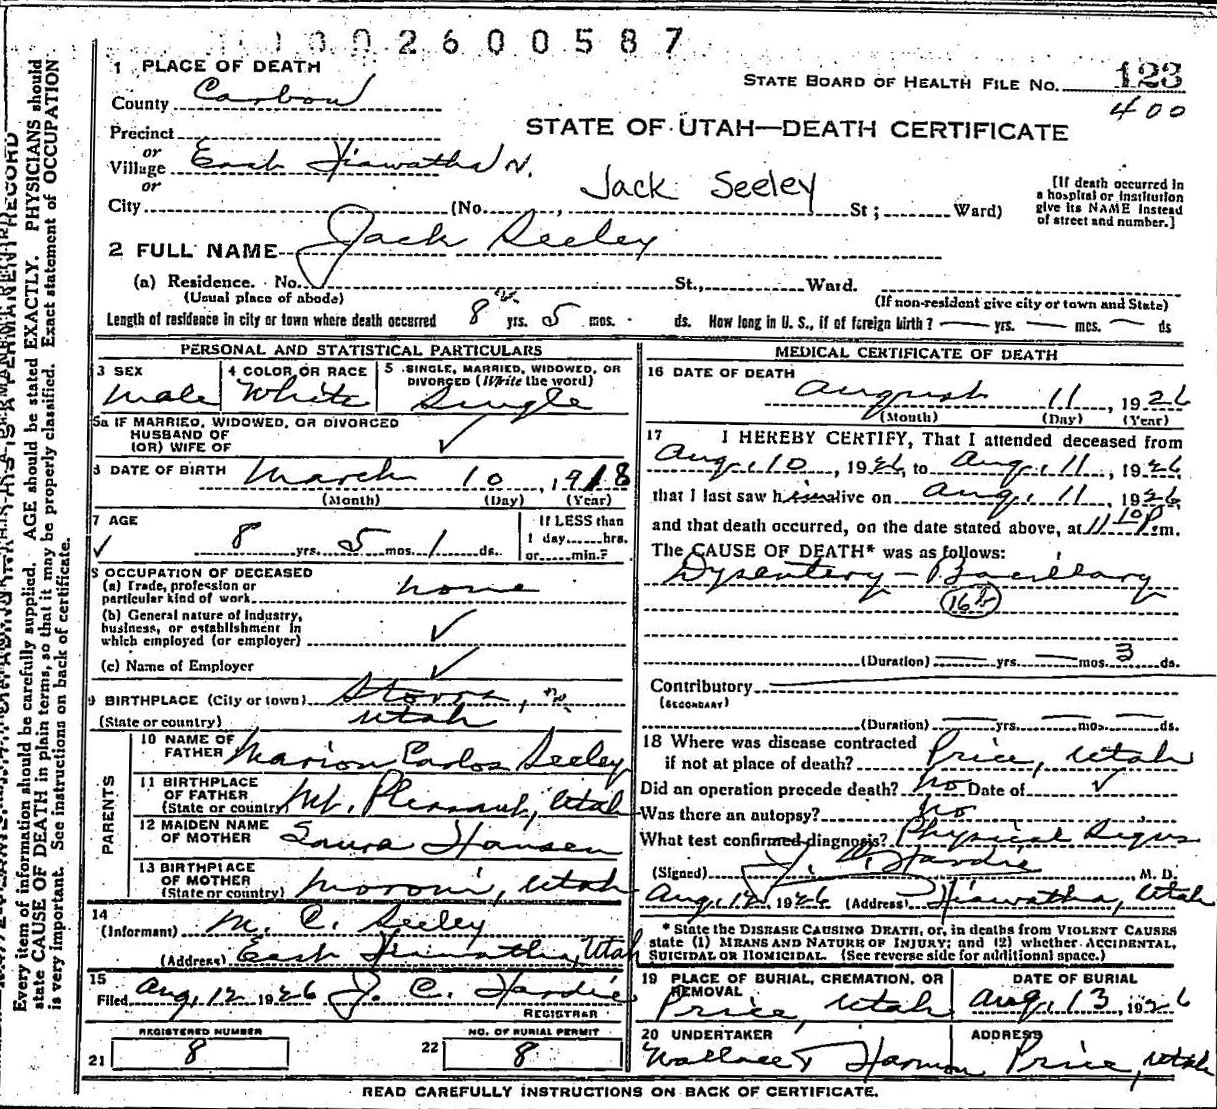 1002600587
1 PLACE OF DEATH
STATE BOARD OF HEALTH FILE NO. 123
400
County Carbon
STATE OF UTAH—DEATH CERTIFICATE
Precinct
or
Village East Hiawatha
or
Jack Seeley
City (No. , St; Ward)
[If death occurred in
a hospital or institution
give its NAME instead
of street and number.]
2 FULL NAME Jack Seeley
(a) Residence. No. St., Ward.
(Usual place of abode) (If non-resident give city or town and State)
Length of residence in city or town where death occurred 8 yrs. 5 mos. ds. How long in U. S., if of foreign birth? — yrs. — mos. — ds
PERSONAL AND STATISTICAL PARTICULARS
3 SEX
Male
4 COLOR OR RACE
White
5 SINGLE, MARRIED, WIDOWED, OR
DIVORCED (Write the word)
Single
5a IF MARRIED, WIDOWED, OR DIVORCED
HUSBAND OF
(OR) WIFE OF ✓
6 DATE OF BIRTH March 10, 1918
(Month) (Day) (Year)
7 AGE
✓ 8 yrs. 5 mos. 1 ds.
If LESS than
1 day......hrs.
or......min.?
8 OCCUPATION OF DECEASED
(a) Trade, profession or
particular kind of work none
(b) General nature of industry,
business, or establishment in
which employed (or employer) ✓
(c) Name of Employer ✓
9 BIRTHPLACE (City or town) Storrs,
(State or country) Utah
PARENTS
10 NAME OF
FATHER Marion Carlos Seeley
11 BIRTHPLACE
OF FATHER
(State or country) Mt. Pleasant, Utah
12 MAIDEN NAME
OF MOTHER Laura Hansen
13 BIRTHPLACE
OF MOTHER
(State or country) Moroni, Utah
14
(Informant) M. C. Seeley
(Address) East Hiawatha, Utah
15
Filed Aug. 12 1926 J. C. Hardie
REGISTRAR
REGISTERED NUMBER
21 8
NO. OF BURIAL PERMIT
22 8
MEDICAL CERTIFICATE OF DEATH
16 DATE OF DEATH
August 11, 1926
(Month) (Day) (Year)
17 I HEREBY CERTIFY, That I attended deceased from
Aug. 10, 1926, to Aug. 11, 1926
that I last saw him alive on Aug. 11, 1926,
and that death occurred, on the date stated above, at 11 10 P.m.
The CAUSE OF DEATH* was as follows:
Dysentery — Bacillary
16b
(Duration) — yrs. — mos. 3 ds.
Contributory
(SECONDARY)
(Duration) — yrs. — mos. — ds.
18 Where was disease contracted
if not at place of death? Price, Utah
Did an operation precede death? no Date of ✓
Was there an autopsy? no
What test confirmed diagnosis? Physical Signs
(Signed) Hardie M. D.
Aug. 12, 1926 (Address) Hiawatha, Utah
* State the DISEASE CAUSING DEATH, or, in deaths from VIOLENT CAUSES
state (1) MEANS AND NATURE OF INJURY; and (2) whether ACCIDENTAL,
SUICIDAL OR HOMICIDAL. (See reverse side for additional space.)
19 PLACE OF BURIAL, CREMATION, OR
REMOVAL
Price, Utah
DATE OF BURIAL
Aug. 13, 1926
20 UNDERTAKER
Wallace & Harmon
ADDRESS
Price, Utah
READ CAREFULLY INSTRUCTIONS ON BACK OF CERTIFICATE.
Every item of information should be carefully supplied. AGE should be stated EXACTLY. PHYSICIANS should
state CAUSE OF DEATH in plain terms, so that it may be properly classified. Exact statement of OCCUPATION
is very important. See instructions on back of certificate.